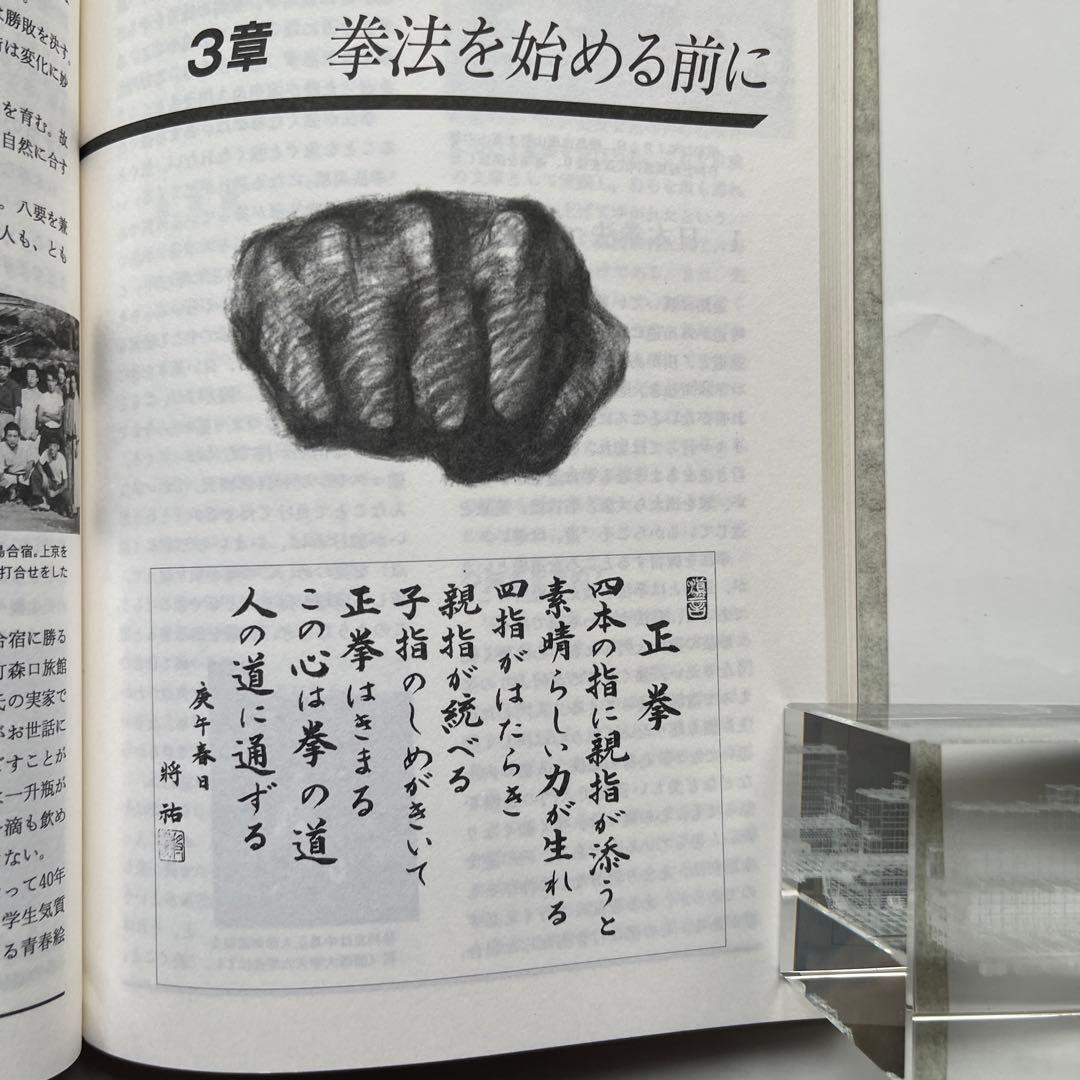 3章 拳法を始める前に
正拳
四本の指に親指が添うと
素晴らしい力が生れる
四指がはたらき
親指が統べる
子指のしめがきいて
正拳はきまる
この心は拳の道
人の道に通ずる
庚午春日
將祐
は勝敗を決す。
術は変化に妙
を育む。故
自然に合す
。八要を兼
人も、とも
島合宿。上京を
打合せをした
合宿に勝る
町森口旅館
氏の実家で
お世話に
ごすことが
一升瓶が
一滴も飲め
きない。
って40年
学生気質
る青春絵